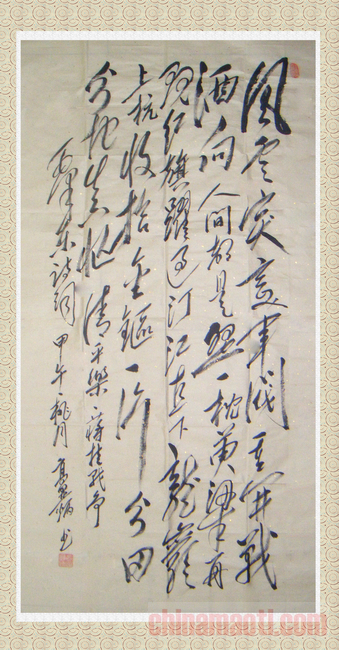 风雲突変軍阀重開戰
洒向人间都是怨一枕黄梁再
现红旗躍过汀江直下龍巖
上杭收拾金甌一片分田
分地真忙 清平樂·蒋桂战争
毛泽东诗词 甲午桃月 书
chinamaoti.com